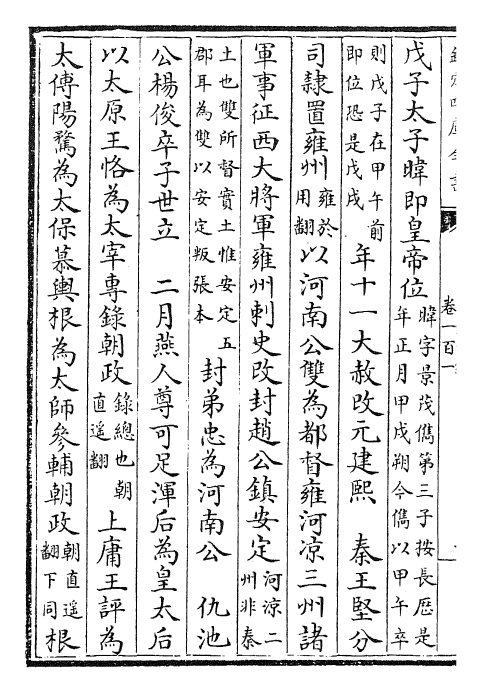 欽定四庫全書
卷一百一
戊子太子暐即皇帝位暐字景茂儁第三子按長厯是年正月甲戌朔今儁以甲午卒
則戊子在甲午前即位恐是戊戌年十一大赦改元建熙　秦王堅分
司隸置雍州雍於用翻以河南公雙為都督雍河凉三州諸
軍事征西大將軍雍州刺史改封趙公鎮安定河凉二州非秦
土也雙所督實土惟安定五郡耳為雙以安定叛張本封弟忠為河南公　仇池
公楊俊卒子世立　二月燕人尊可足渾后為皇太后
以太原王恪為太宰專錄朝政錄總也朝直遥翻上庸王評為
太傅陽騖為太保慕輿根為太師參輔朝政朝直遥翻下同根